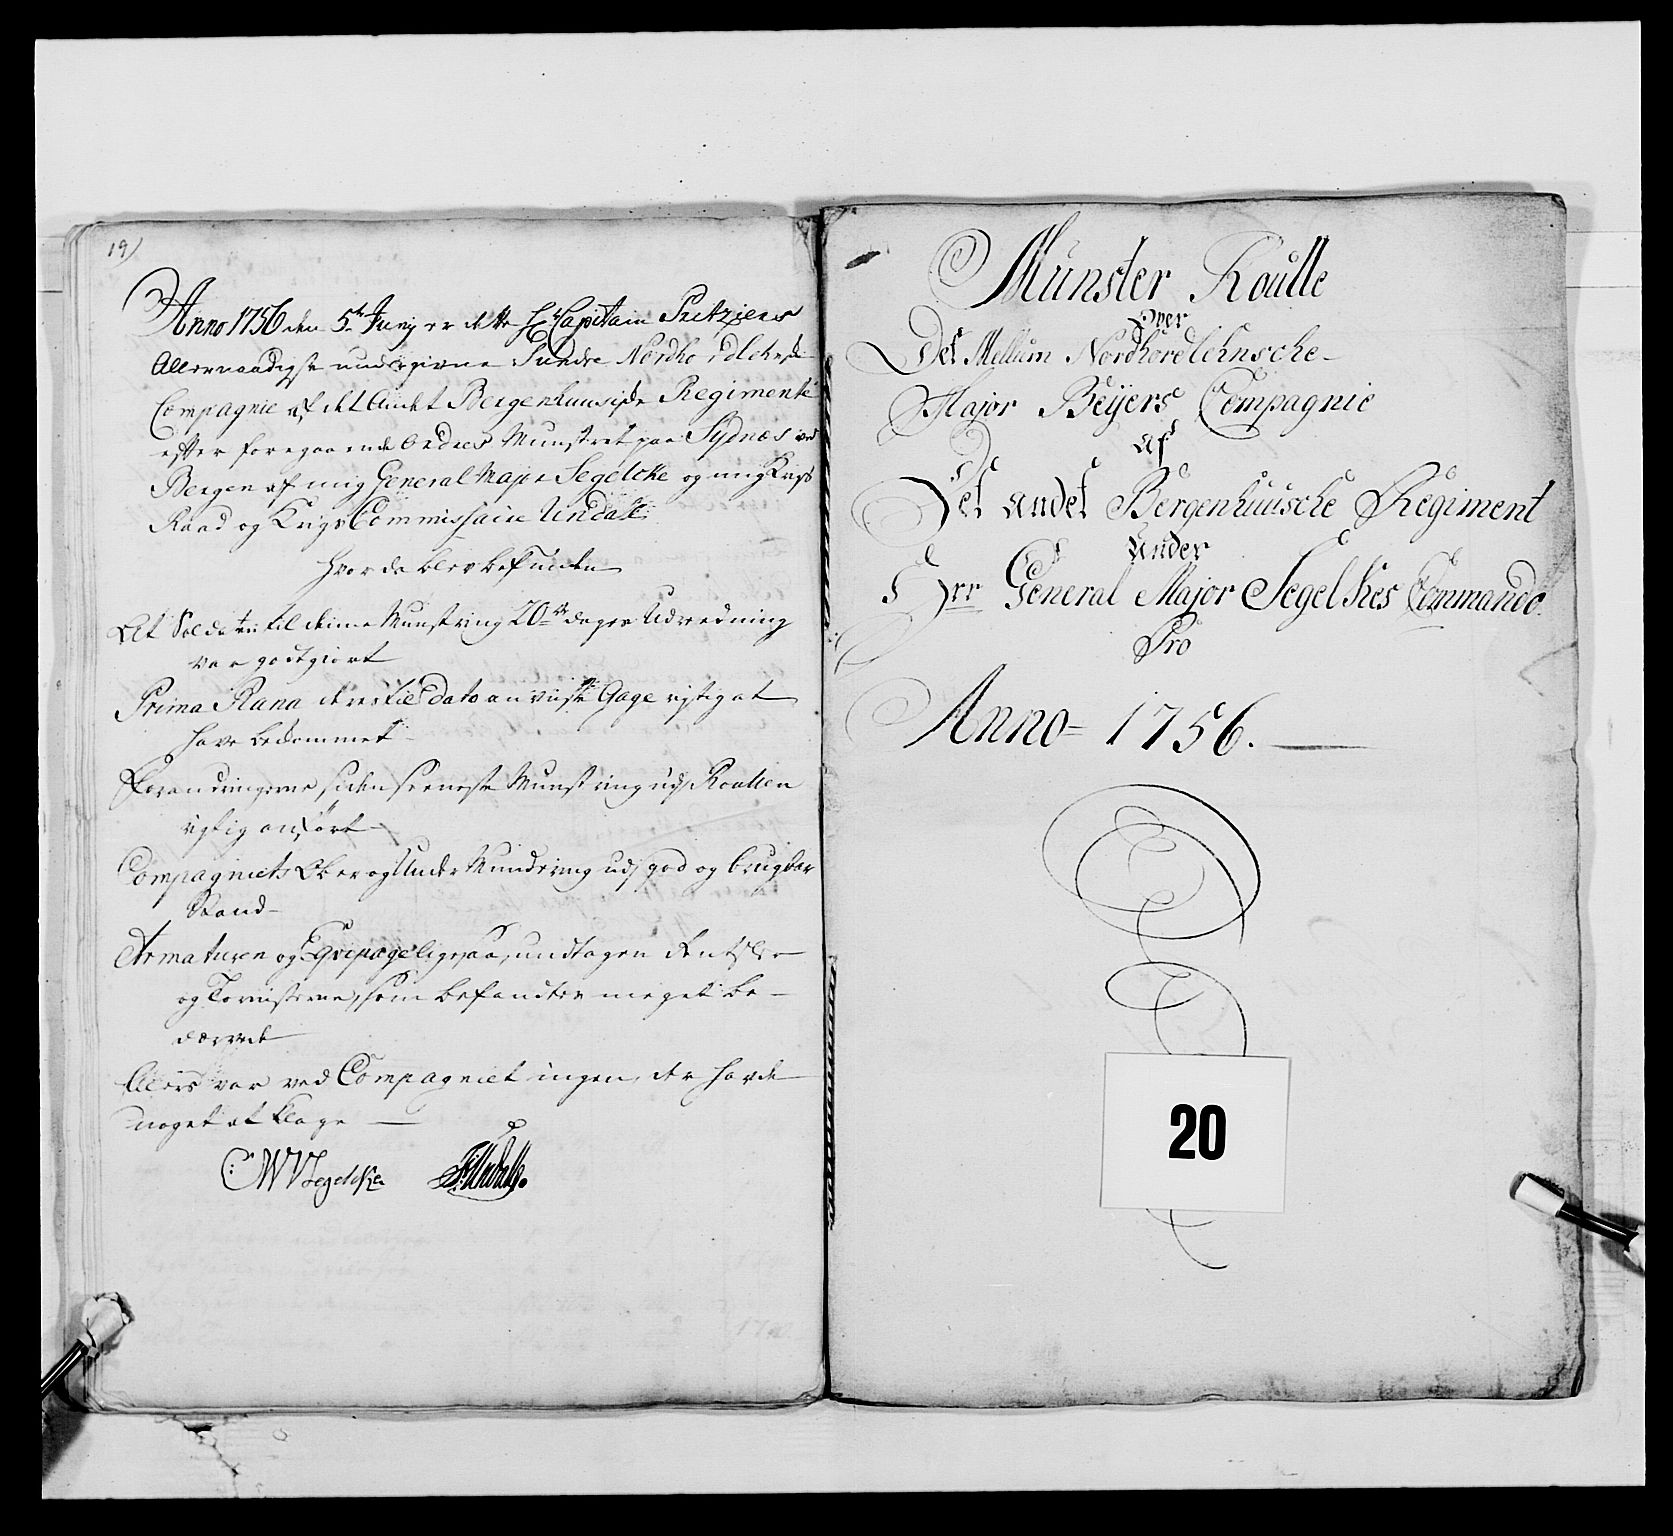 19)
Anno 1756 den 5te Junij er dette Hr Capitain Pritziers
Allernaadigst undergivne Søndre Nordhordlehnske
Compagnie af det Andet Bergenhuusiske Regimente
efter foregaaende Ordres Munstret paa Sydnæs ved
Bergen af mig General Major Segelcke og mig Krigs
Raad og Krigs Commissaire Undall
Hvor da blev befunden
At Soldaten til denne Munstring 20de dages Udredning
var godtgiort
Prima Plana deres til Dato anviiste Gage rigtig at
have bekommet
Forandringerne siden seeneste Munstring udj Roullen
rigtig anført
Compagniets Over og Under Mundering udj god og brugbar
Stand
Armaturen og Eqvipage ligesaa, undtagen
og Tornisterne, som befandtes meget be-
dærvede
Ellers var ved Compagniet ingen, der havde
noget at klage
CWVSegelcke Undall.
Munster Roulle
Over
Det Mellum Nordhordlehnsche
Major Beyers Compagnie
af
Det andet Bergenhuusche Regiment
Under
Herr General Major Segelkes Commando.
Pro
Anno 1756.
20